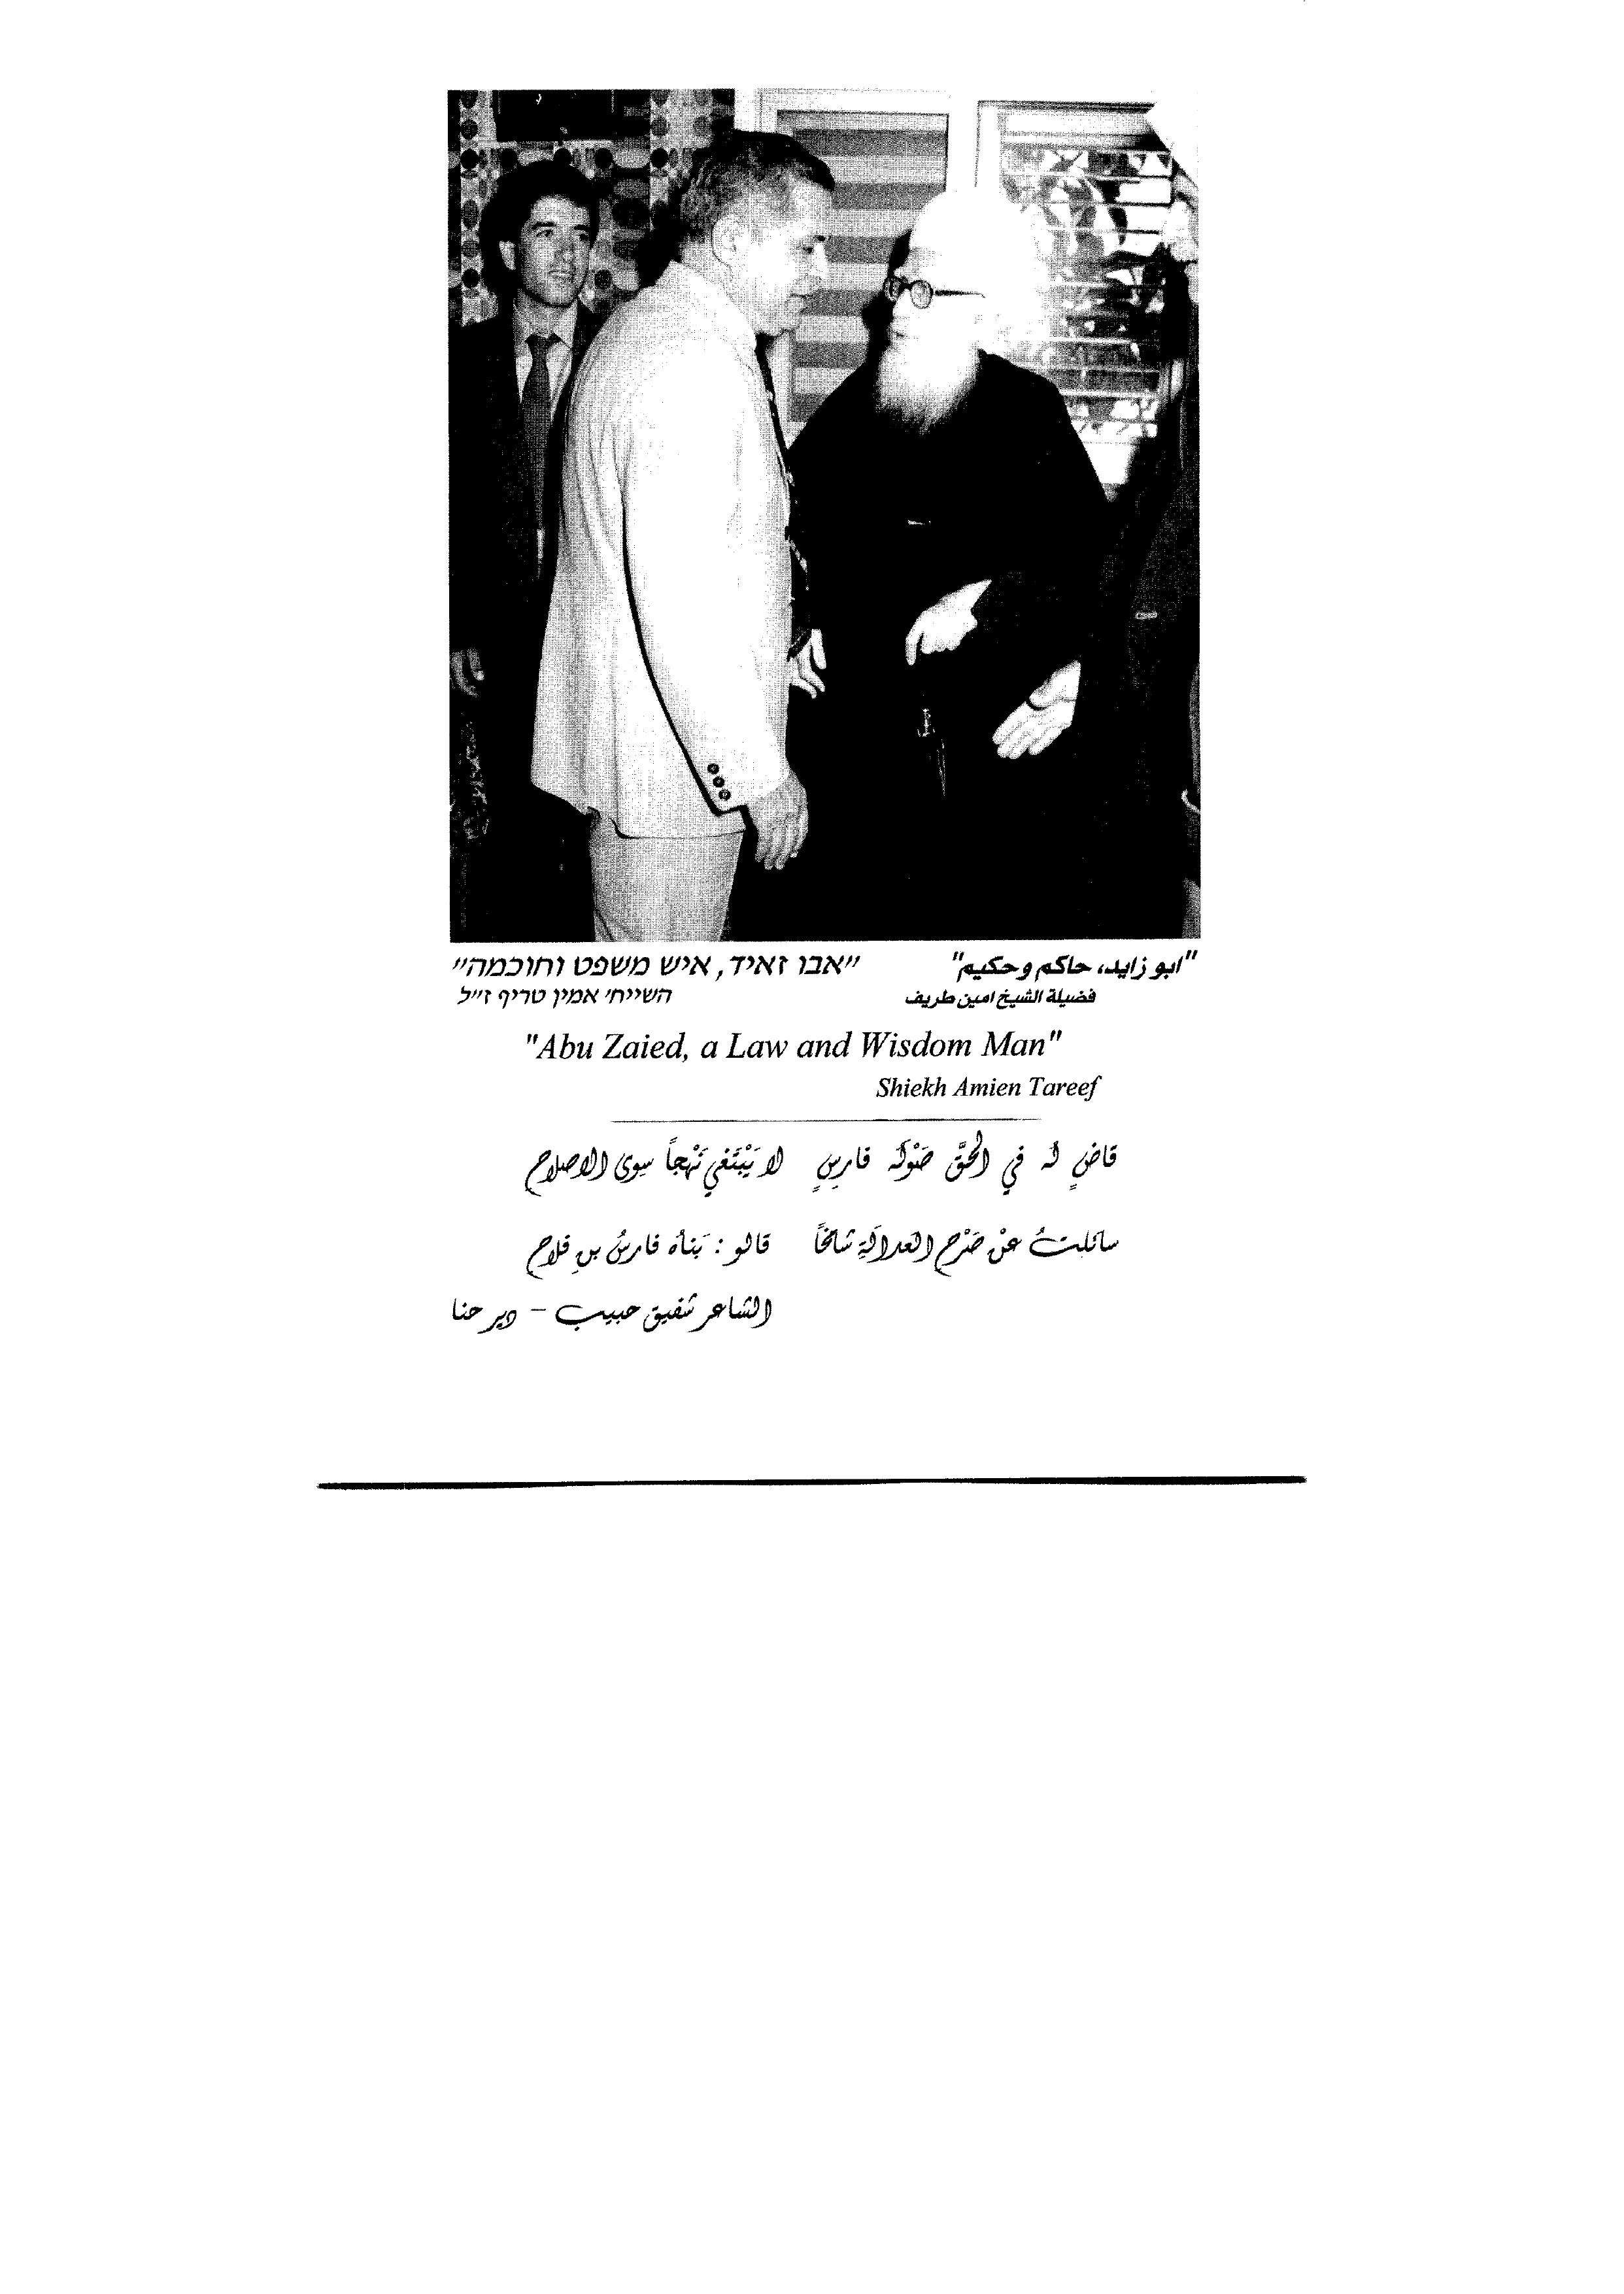 "ابو زايد، حاكم وحكيم"
فضيلة الشيخ امين طريف
"אבו זאיד, איש משפט וחוכמה"
השייח' אמין טריף ז"ל
"Abu Zaied, a Law and Wisdom Man"
Shiekh Amien Tareef
قاضٍ له في الحقَّ صَوْلَه فارِسٍ لا يَبْتَغي نَهْجاً سِوى الاصلاح
سائلتُ عنْ صَرْحِ العدالَةِ شامخاً قالو: بَناهُ فارسُ بنِ فلاح
الشاعر شفيق حبيب - دير حنا